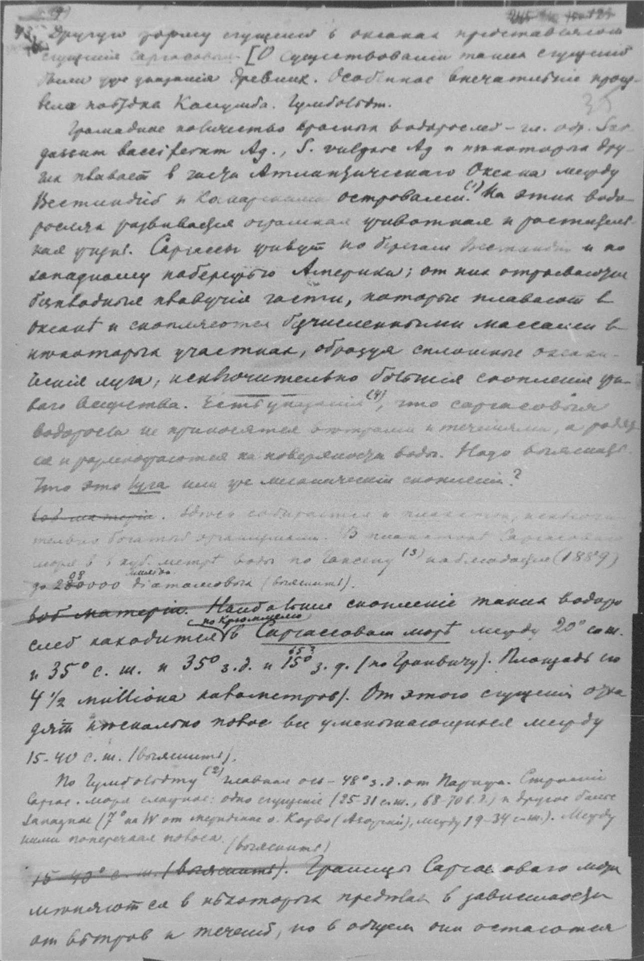 Другую форму сгущений в океанах представляют
сгущения саргассовые. [О существовании таких сгущений
были уже указания древних. Особенное впечатление произ-
вела поездка Колумба. Гумбольдт.
35
Громадное количество бурых водорослей – гл. обр. Sar
gassum bacciferum Ag., S. vulgare Ag и некоторых дру-
гих плавает в части Атлантического Океана между
Вестиндией и островами.(1) На этих водо-
рослях развивается огромная животная и раститель-
ная жизнь. Саргассы живут по берегам Вестиндии и по
западному побережью Америки; от них отрываются
плавучия части, которые плавают в
океане и скопляются бесчисленными массами в
некоторых участках, образуя сплошные океани-
ческие луга, исключительно большие скопления жи-
вого вещества. Есть указания(4), что саргассовыя
водоросли не приносятся ветрами и течениями, а родят
ся и размножаются на поверхности воды. Надо выяснить.
Что это луга или же механическия скопления?
Здесь собирается и планктон, исключи-
тельно богатый организмами. В планктоне Саргассова
моря в 1 куб. метре воды по Гензену (3) наблюдаются (1889)
до 200000 diатомовых (выяснить).
вой материи. Наибольшие скопление таких водоро
слей находится по Крюммелю в Саргассовом море между 20° с.ш.
и 35° с. ш. и 35° з.д. и з.д. (по Гринвичу). Площадь его
4 ½ миллиона кв. метров). От этого сгущения отхо
дят несколько полос все уменьшающихся между
15-40 с.ш. (выяснить).
По Гумбольдту (2) главная ось – 48° з.д. от Парижа. Строение
Саргас. моря сложное: одно сгущение (25-31 с.ш., 68-70 з.д.) и другое более
западное (7° на W от меридиана о. Корво (Азорский), между 19-34 с.ш.). Между
ними поперечная полоса (выяснить)
15-40° с. ш. (выяснить). Границы Саргассоваго моря
меняются в некоторых пределах в зависимости
от ветров и течений, но в общем они остаются